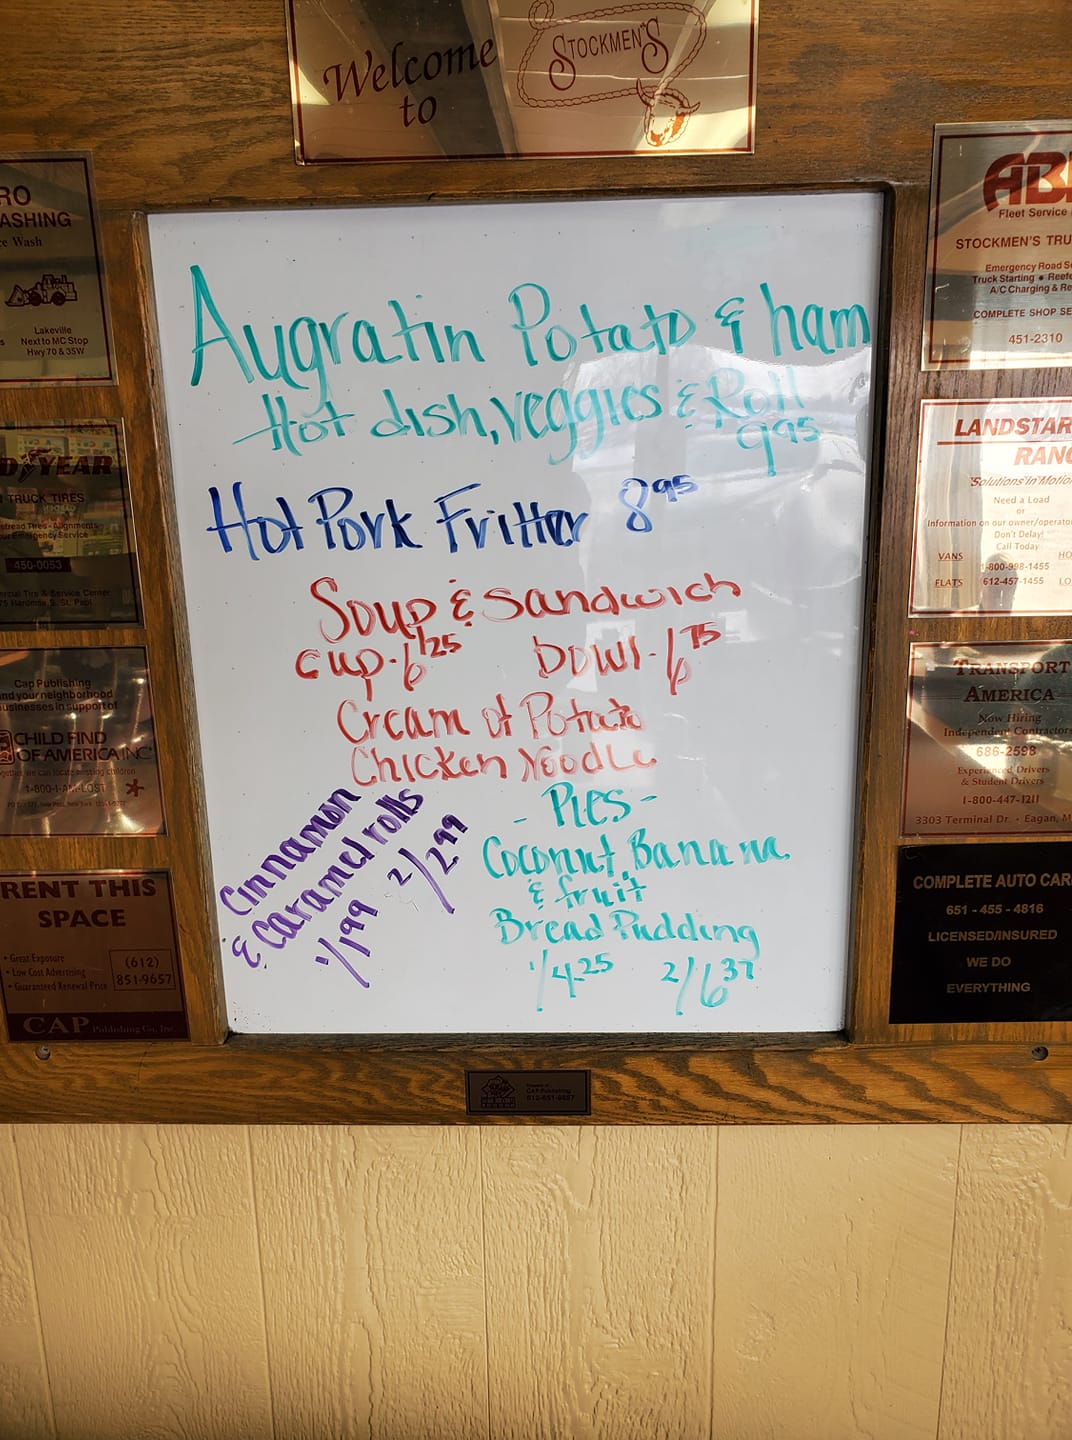 Welcome
to
STOCKMEN'S
Augratin Potato & ham
Hot dish, veggies & Roll
9 95
Hot Pork Fritter 8 95
Soup & Sandwich
Cup - 6 25 bowl - 6 75
Cream of Potato
Chicken Noodle
- Pies -
Coconut, Banana
& fruit
Bread Pudding
1/4.25 2/6 37
Cinnamon
& Caramel rolls
1/1 99 2/2 99
RO
ASHING
ce Wash
Lakeville
Next to MC Stop
Hwy 70 & 35W
D YEAR
TRUCK TIRES
tread Tires - Alignments
ur Emergency Service
450-0053
ercial Tire & Service Center
75 Hardman S. St. Paul
Cap Publishing
nd your neighborhood
usinesses in support of
CHILD FIND
OF AMERICA INC
ogether we can locate missing children
1-800-I-AM-LOST
RENT THIS
SPACE
• Great Exposure
• Low Cost Advertising
• Guaranteed Renewal Price
(612)
851-9657
CAP Publishing Co, Inc
AB
Fleet Service
STOCKMEN'S TRU
Emergency Road Se
Truck Starting • Reefe
A/C Charging & Re
COMPLETE SHOP SE
451-2310
LANDSTAR
RANG
"Solutions In Motion
Need a Load
or
Information on our owner/operator
Don't Delay!
Call Today
VANS 1-800-998-1455 HO
FLATS 612-457-1455 LO
TRANSPORT
AMERICA
Now Hiring
Independent Contractors
686-2598
Experienced Drivers
& Student Drivers
1-800-447-1211
3303 Terminal Dr. • Eagan, M
COMPLETE AUTO CAR
651 - 455 - 4816
LICENSED/INSURED
WE DO
EVERYTHING
CAP Publishing
612-851-9657